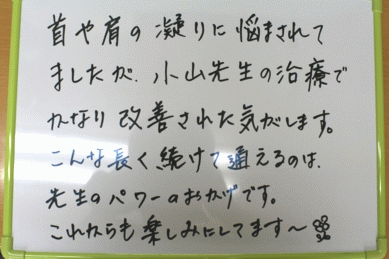 首や肩の凝りに悩まされて
ましたが、小山先生の治療で
かなり改善された気がします。
こんな長く続けて通えるのは、
先生のパワーのおかげです。
これからも楽しみにしてます〜